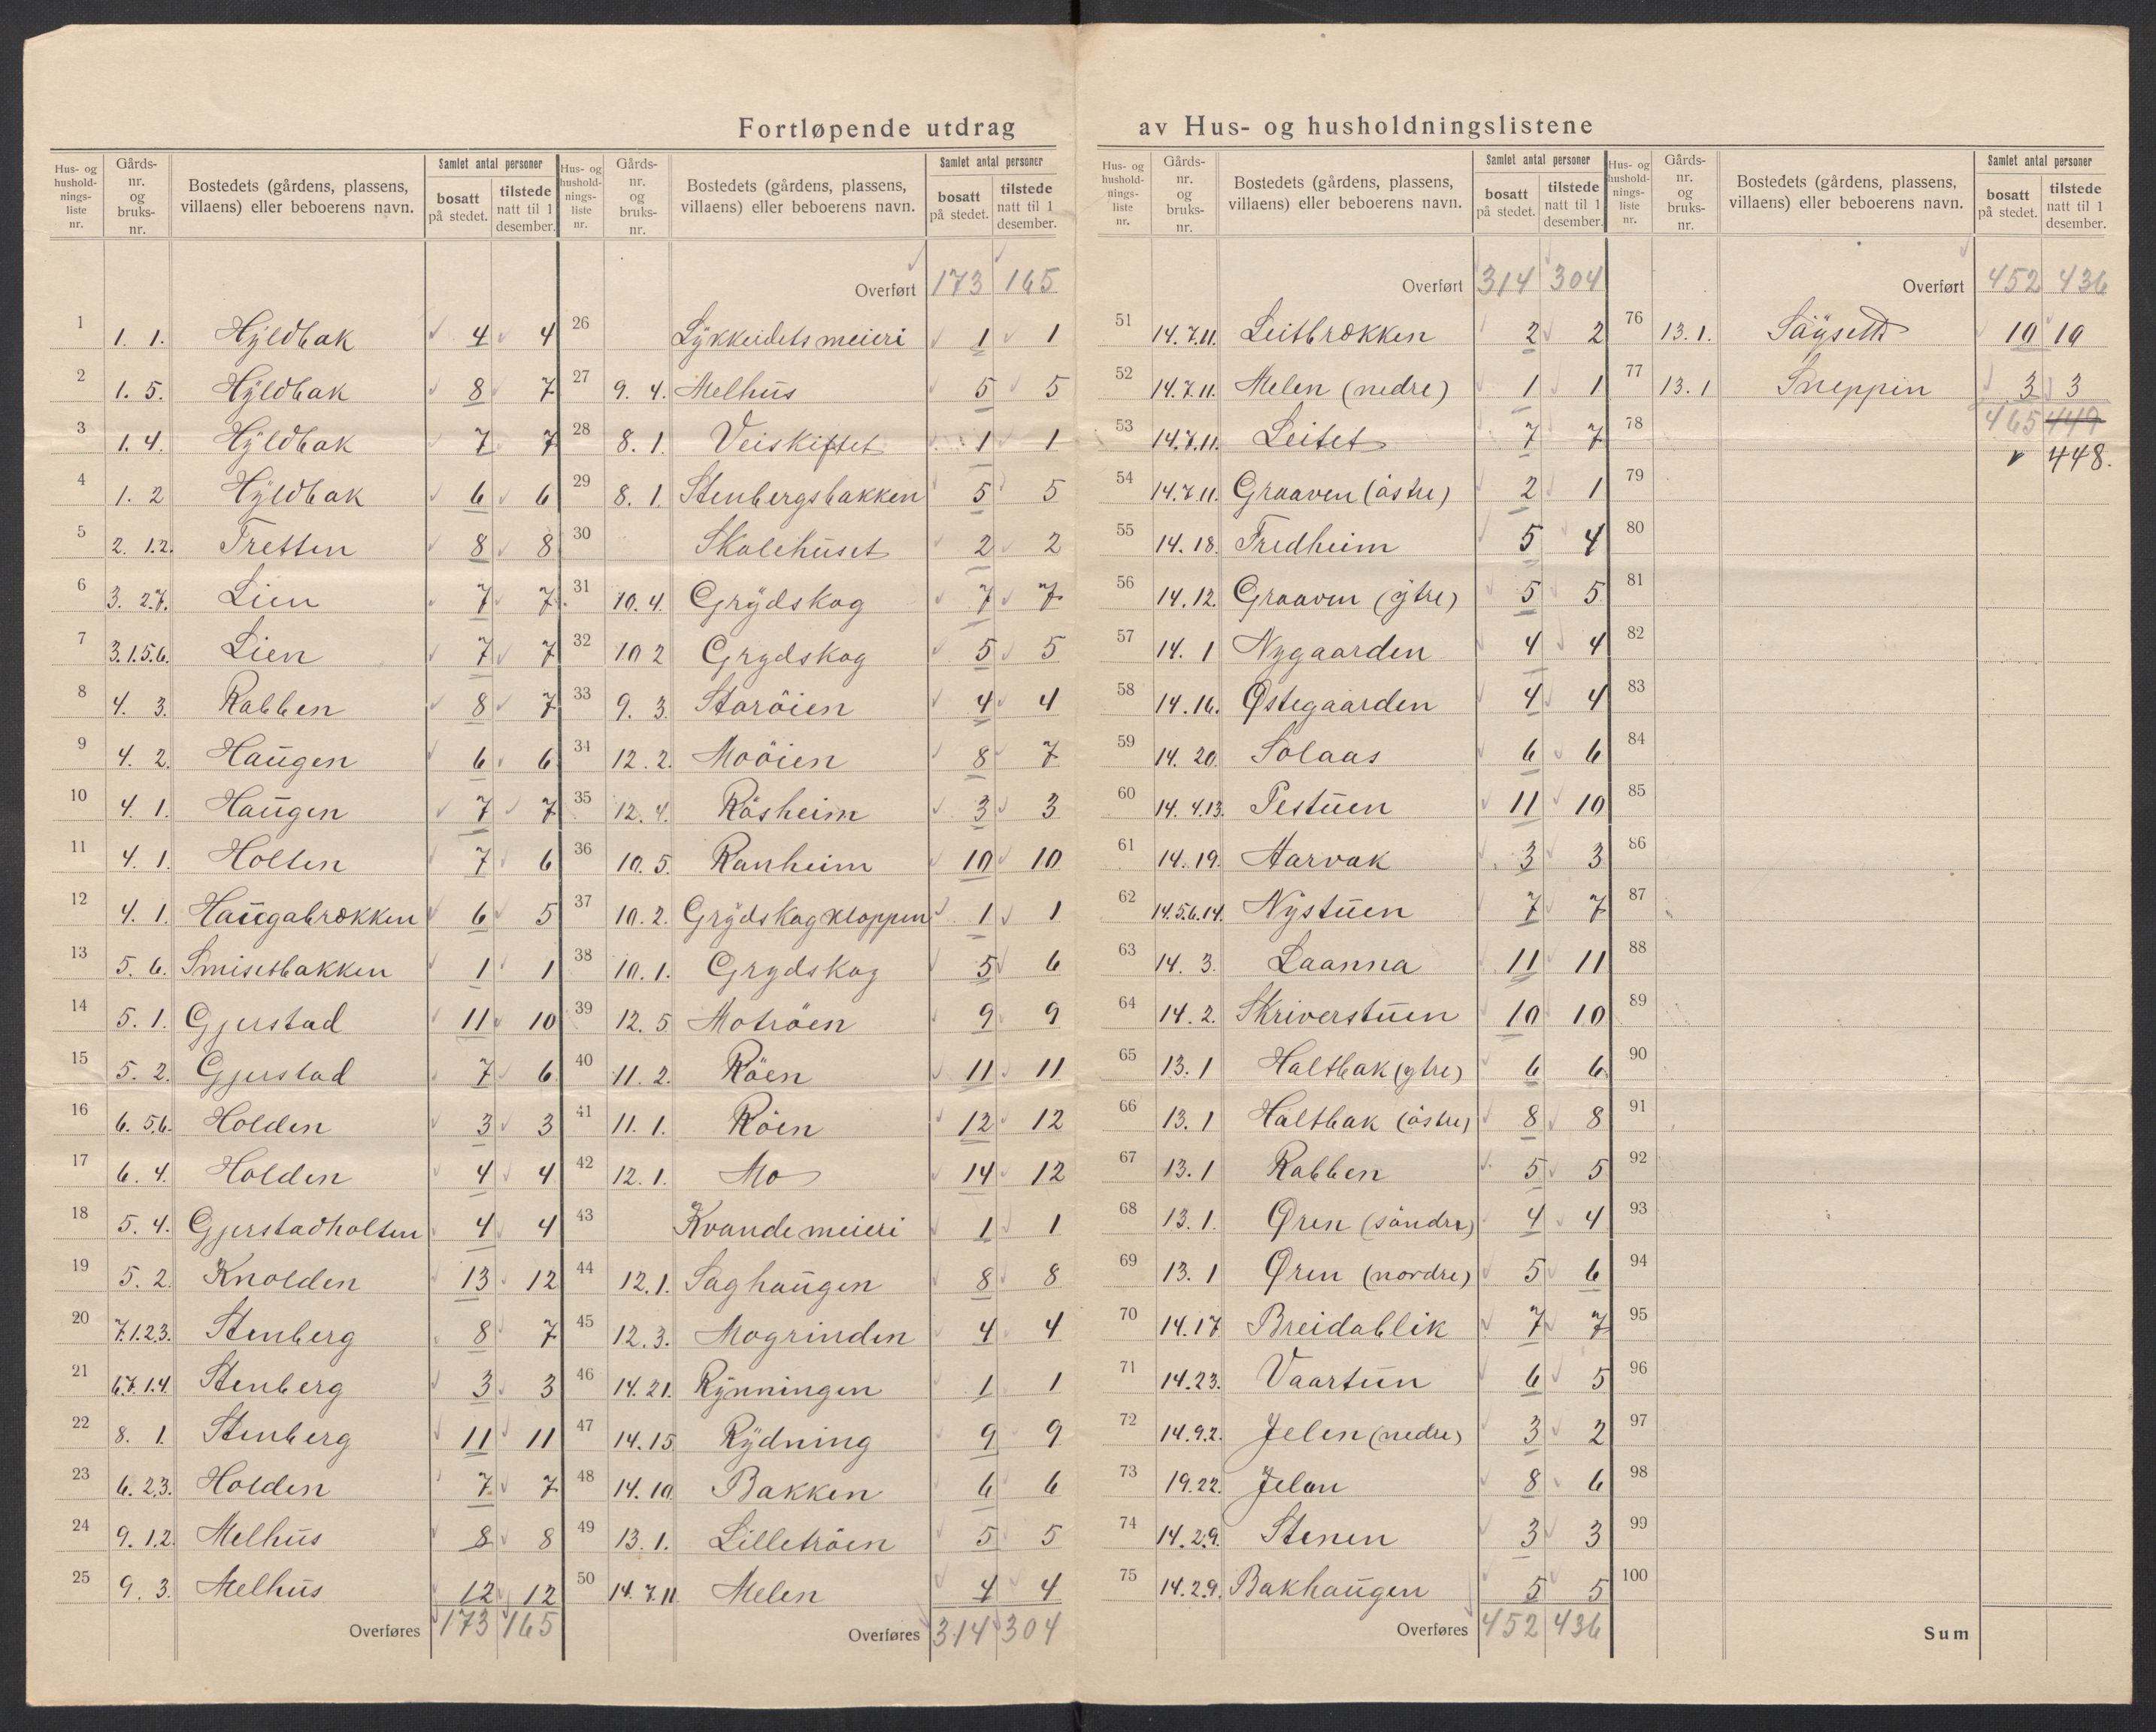 Fortløpende utdrag av Hus- og husholdningslistene
Hus- og husholdningsliste nr. | Gårds-nr. og bruks-nr. | Bostedets (gårdens, plassens, villaens) eller beboerens navn. | Samlet antal personer bosatt på stedet. | tilstede natt til 1 desember.
1 | 1. 1. | Hÿldbak | 4 | 4
2 | 1. 5. | Hÿldbak | 8 | 7
3 | 1. 4. | Hÿldbak | 7 | 7
4 | 1. 2 | Hÿldbak | 6 | 6
5 | 2. 1.2. | Tretten | 8 | 8
6 | 3. 2.7. | Lien | 7 | 7
7 | 3.1.5.6. | Lien | 7 | 7
8 | 4. 3. | Rabben | 8 | 7
9 | 4. 2. | Haugen | 6 | 6
10 | 4. 1. | Haugen | 7 | 7
11 | 4. 1. | Holten | 7 | 6
12 | 4. 1. | Haugabrækken | 6 | 5
13 | 5. 6. | Smisetbakken | 1 | 1
14 | 5. 1. | Gjerstad | 11 | 10
15 | 5. 2. | Gjerstad | 7 | 6
16 | 6. 5.6. | Holden | 3 | 3
17 | 6. 4. | Holden | 4 | 4
18 | 5. 4. | Gjerstadholten | 4 | 4
19 | 5. 2. | Knolden | 13 | 12
20 | 7.1.2.3. | Stenberg | 8 | 7
21 | 6.7. 1.4. | Stenberg | 3 | 3
22 | 8. 1. | Stenberg | 11 | 11
23 | 6. 2.3. | Holden | 7 | 7
24 | 9. 1.2. | Melhus | 8 | 8
25 | 9. 3. | Melhus | 12 | 12
Overføres 173 165
Hus- og husholdningsliste nr. | Gårds-nr. og bruks-nr. | Bostedets (gårdens, plassens, villaens) eller beboerens navn. | Samlet antal personer bosatt på stedet. | tilstede natt til 1 desember.
Overført 173 165
26 | Lÿkkeidets meieri | 1 | 1
27 | 9. 4. | Melhus | 5 | 5
28 | 8. 1. | Veiskiftet | 1 | 1
29 | 8. 1. | Stenbergsbakken | 5 | 5
30 | Skolehuset | 2 | 2
31 | 10. 4. | Grÿdskog | 7 | 7
32 | 10 2 | Grydskog | 5 | 5
33 | 9. 3. | Storöien | 4 | 4
34 | 12. 2. | Moöien | 8 | 7
35 | 12. 4. | Rösheim | 3 | 3
36 | 10. 5. | Ranheim | 10 | 10
37 | 10. 2. | Grÿdskogkloppen | 1 | 1
38 | 10. 1. | Grydskog | 5 | 6
39 | 12. 5 | Motröen | 9 | 9
40 | 11. 2. | Röen | 11 | 11
41 | 11. 1. | Röen | 12 | 12
42 | 12. 1. | Mo | 14 | 12
43 | Kvande meieri | 1 | 1
44 | 12.1. | Saghaugen | 8 | 8
45 | 12. 3. | Mogrinden | 4 | 4
46 | 14. 21. | Rÿnningen | 1 | 1
47 | 14. 15 | Rÿdning | 9 | 9
48 | 14. 10 | Bakken | 6 | 6
49 | 13. 1. | Lilletröen | 5 | 5
50 | 14. 7. 11 | Melen | 4 | 4
Overføres 314 304
Hus- og husholdningsliste nr. | Gårds-nr. og bruks-nr. | Bostedets (gårdens, plassens, villaens) eller beboerens navn. | Samlet antal personer bosatt på stedet. | tilstede natt til 1 desember.
Overført 314 304
51 | 14. 7.11. | Leitbrækken | 2 | 2
52 | 14. 7. 11. | Melen (nedre) | 1 | 1
53 | 14.7.11. | Leitet | 7 | 7
54 | 14.7.11. | Graaven (östre) | 2 | 1
55 | 14. 18. | Fredheim | 5 | 4
56 | 14. 12. | Graaven (ÿtre) | 5 | 5
57 | 14. 1 | Nygaarden | 4 | 4
58 | 14. 16. | Østegaarden | 4 | 4
59 | 14. 20. | Solaas | 6 | 6
60 | 14. 4.13. | Pestuen | 11 | 10
61 | 14. 19. | Aarvak | 3 | 3
62 | 14.5.6.14. | Nÿstuen | 7 | 7
63 | 14. 3. | Laanna | 11 | 11
64 | 14. 2. | Skriverstuen | 10 | 10
65 | 13. 1 | Haltbak (ytre) | 6 | 6
66 | 13. 1 | Haltbak (östre) | 8 | 8
67 | 13. 1 | Rabben | 5 | 5
68 | 13. 1. | Øren (söndre) | 4 | 4
69 | 13. 1 | Øren (nordre) | 5 | 6
70 | 14.17. | Breidablik | 7 | 7
71 | 14.23. | Vaartun | 6 | 5
72 | 14.9.2. | Jelen (nedre) | 3 | 2
73 | 19.22. | Jelen | 8 | 6
74 | 14. 2.9. | Stenen | 3 | 3
75 | 14.2.9. | Bakhaugen | 5 | 5
Overføres 452 436
Hus- og husholdningsliste nr. | Gårds-nr. og bruks-nr. | Bostedets (gårdens, plassens, villaens) eller beboerens navn. | Samlet antal personer bosatt på stedet. | tilstede natt til 1 desember.
Overført 452 436
76 | 13. 1. | 10 | 10
77 | 13. 1 | Sneppin | 3 | 3
78 | 465 449
448.
79
80
81
82
83
84
85
86
87
88
89
90
91
92
93
94
95
96
97
98
99
100
Sum